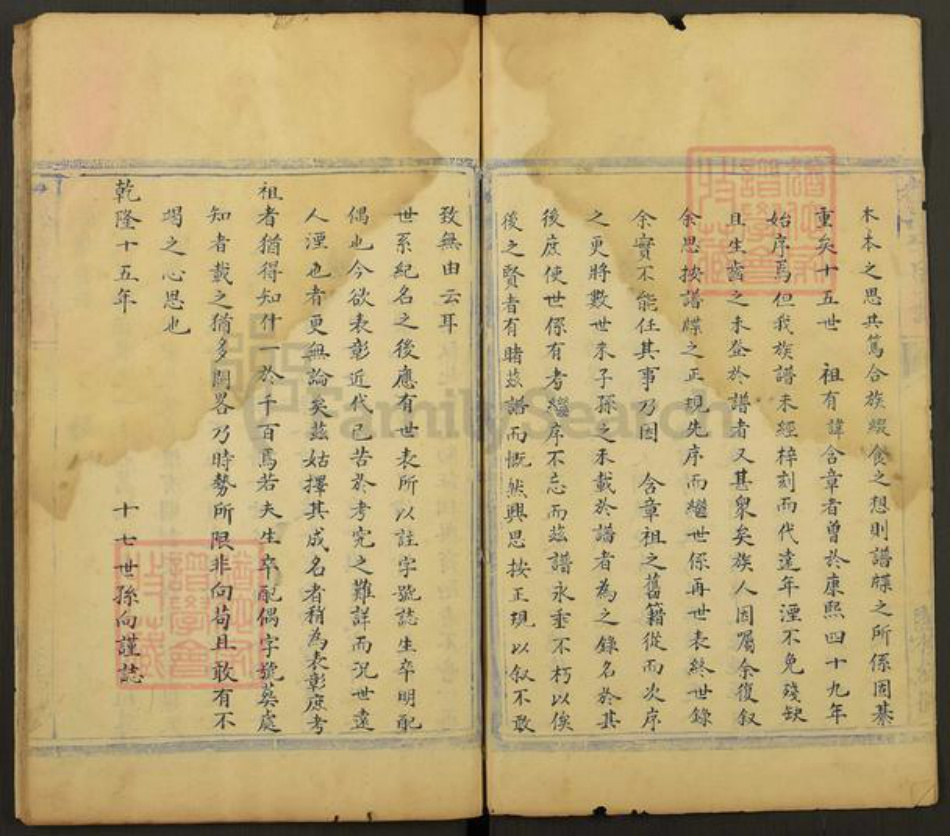 木本之思共篤合族綴食之想則譜牒之所係固綦
重矣十五世 祖有諱含章者曾於康熙四十九年
始序焉但我族譜未經梓刻而代遠年湮不免殘缺
且生齒之未登於譜者又甚衆矣族人因屬余復叙
余思按譜牒之正現先序而繼世係再世表終世錄
余實不能任其事乃因 含章祖之舊籍從而次序
之更將數世來子孫之未載於譜者為之錄名於其
後庶使世係有考繼序不忘而茲譜永垂不朽以俟
後之賢者有睹茲譜而慨然興思按正現以叙不敢
致無由云耳
世系紀名之後應有世表所以註字號誌生卒明配
偶也今欲表彰近代已苦於考究之難詳而況世遠
人湮也者更無論矣茲姑擇其成名者稍為表彰庶考
祖者猶得知什一於千百焉若夫生卒配偶字號葬處
知者載之猶多闕畧乃時勢所限非向苟且敢有不
竭之心思也
乾隆十五年 十七世孫向謹誌
FamilySearch